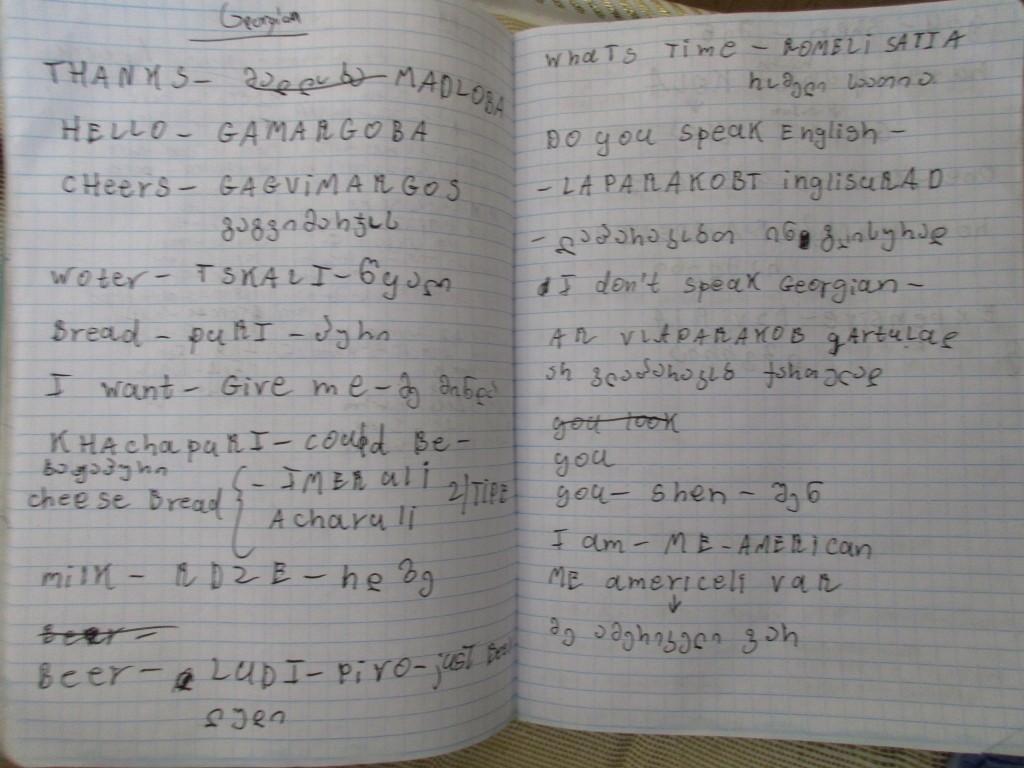 Georgian
THANKS- MADLOBA
HELLO - GAMARGOBA
CHeers - GAGViMARGOS
გაგვიმარჯოს
woter - TSKALI - წყალი
Bread - puRI - პური
I want - Give me - მე მინდა
KHAchapuRI - could Be -
ხაჭაპური
cheese Bread { - IMERuli 2) TIPE
Acharuli
milk - RDZE - რძე
Beer -
Beer - LUDI - Pivo - just Beer
ლუდი
whaTs Time - ROMELi SATIA
რომელი საათია
DO you speak English -
- LAPARAKOBT inglisuRAD
- ლაპარაკობთ ინგლისურად
I don't speak Georgian -
AR VLAPARAKOB qARtulad
არ ვლაპარაკობ ქართულად
you look
you
you - shen - შენ
I am - ME - AMERican
ME americeli vaR
↓
მე ამერიკელი ვარ